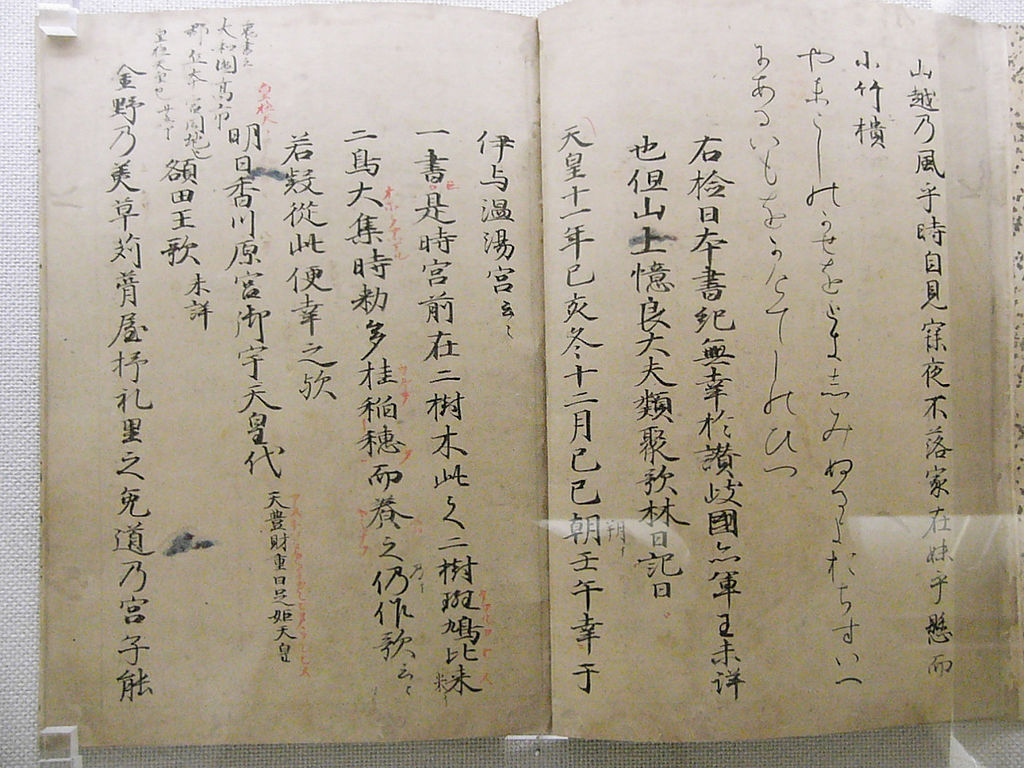 山越乃風乎時自見寐夜不落家在妹乎懸而
小竹樻
やまこしのかせをときしみぬるよおちすいへ
にあるいもをかけてしのひつ
右検日本書紀無幸於讃岐國亦軍王未詳
也但山上憶良大夫類聚歌林曰記曰
天皇十一年己亥冬十二月己巳朝壬午幸于
朔
伊与温湯宮云々
一書是時宮前在二樹木此之二樹斑鳩比未
二鳥大集時勅多桂稲穂而養之仍作歌云々
若疑從此便幸之歟
明日香川原宮御宇天皇代 天豊財重日足姫天皇
大和國高市
額田王歌 未詳
金野乃美草苅葺屋杼礼里之兔道乃宮子能